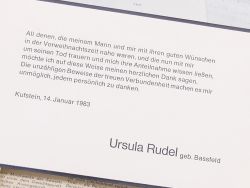 All denen, die meinem Mann und mir mit ihren guten Wünschen
in der Vorweihnachtszeit nahe waren, und die nun mit mir
um seinen Tod trauern und mich ihre Anteilnahme wissen ließen,
möchte ich auf diese Weise meinen herzlichen Dank sagen.
Die unzähligen Beweise der treuen Verbundenheit machen es mir
unmöglich, jedem persönlich zu danken.
Kufstein, 14. Januar 1983
Ursula Rudel geb. Bassfeld